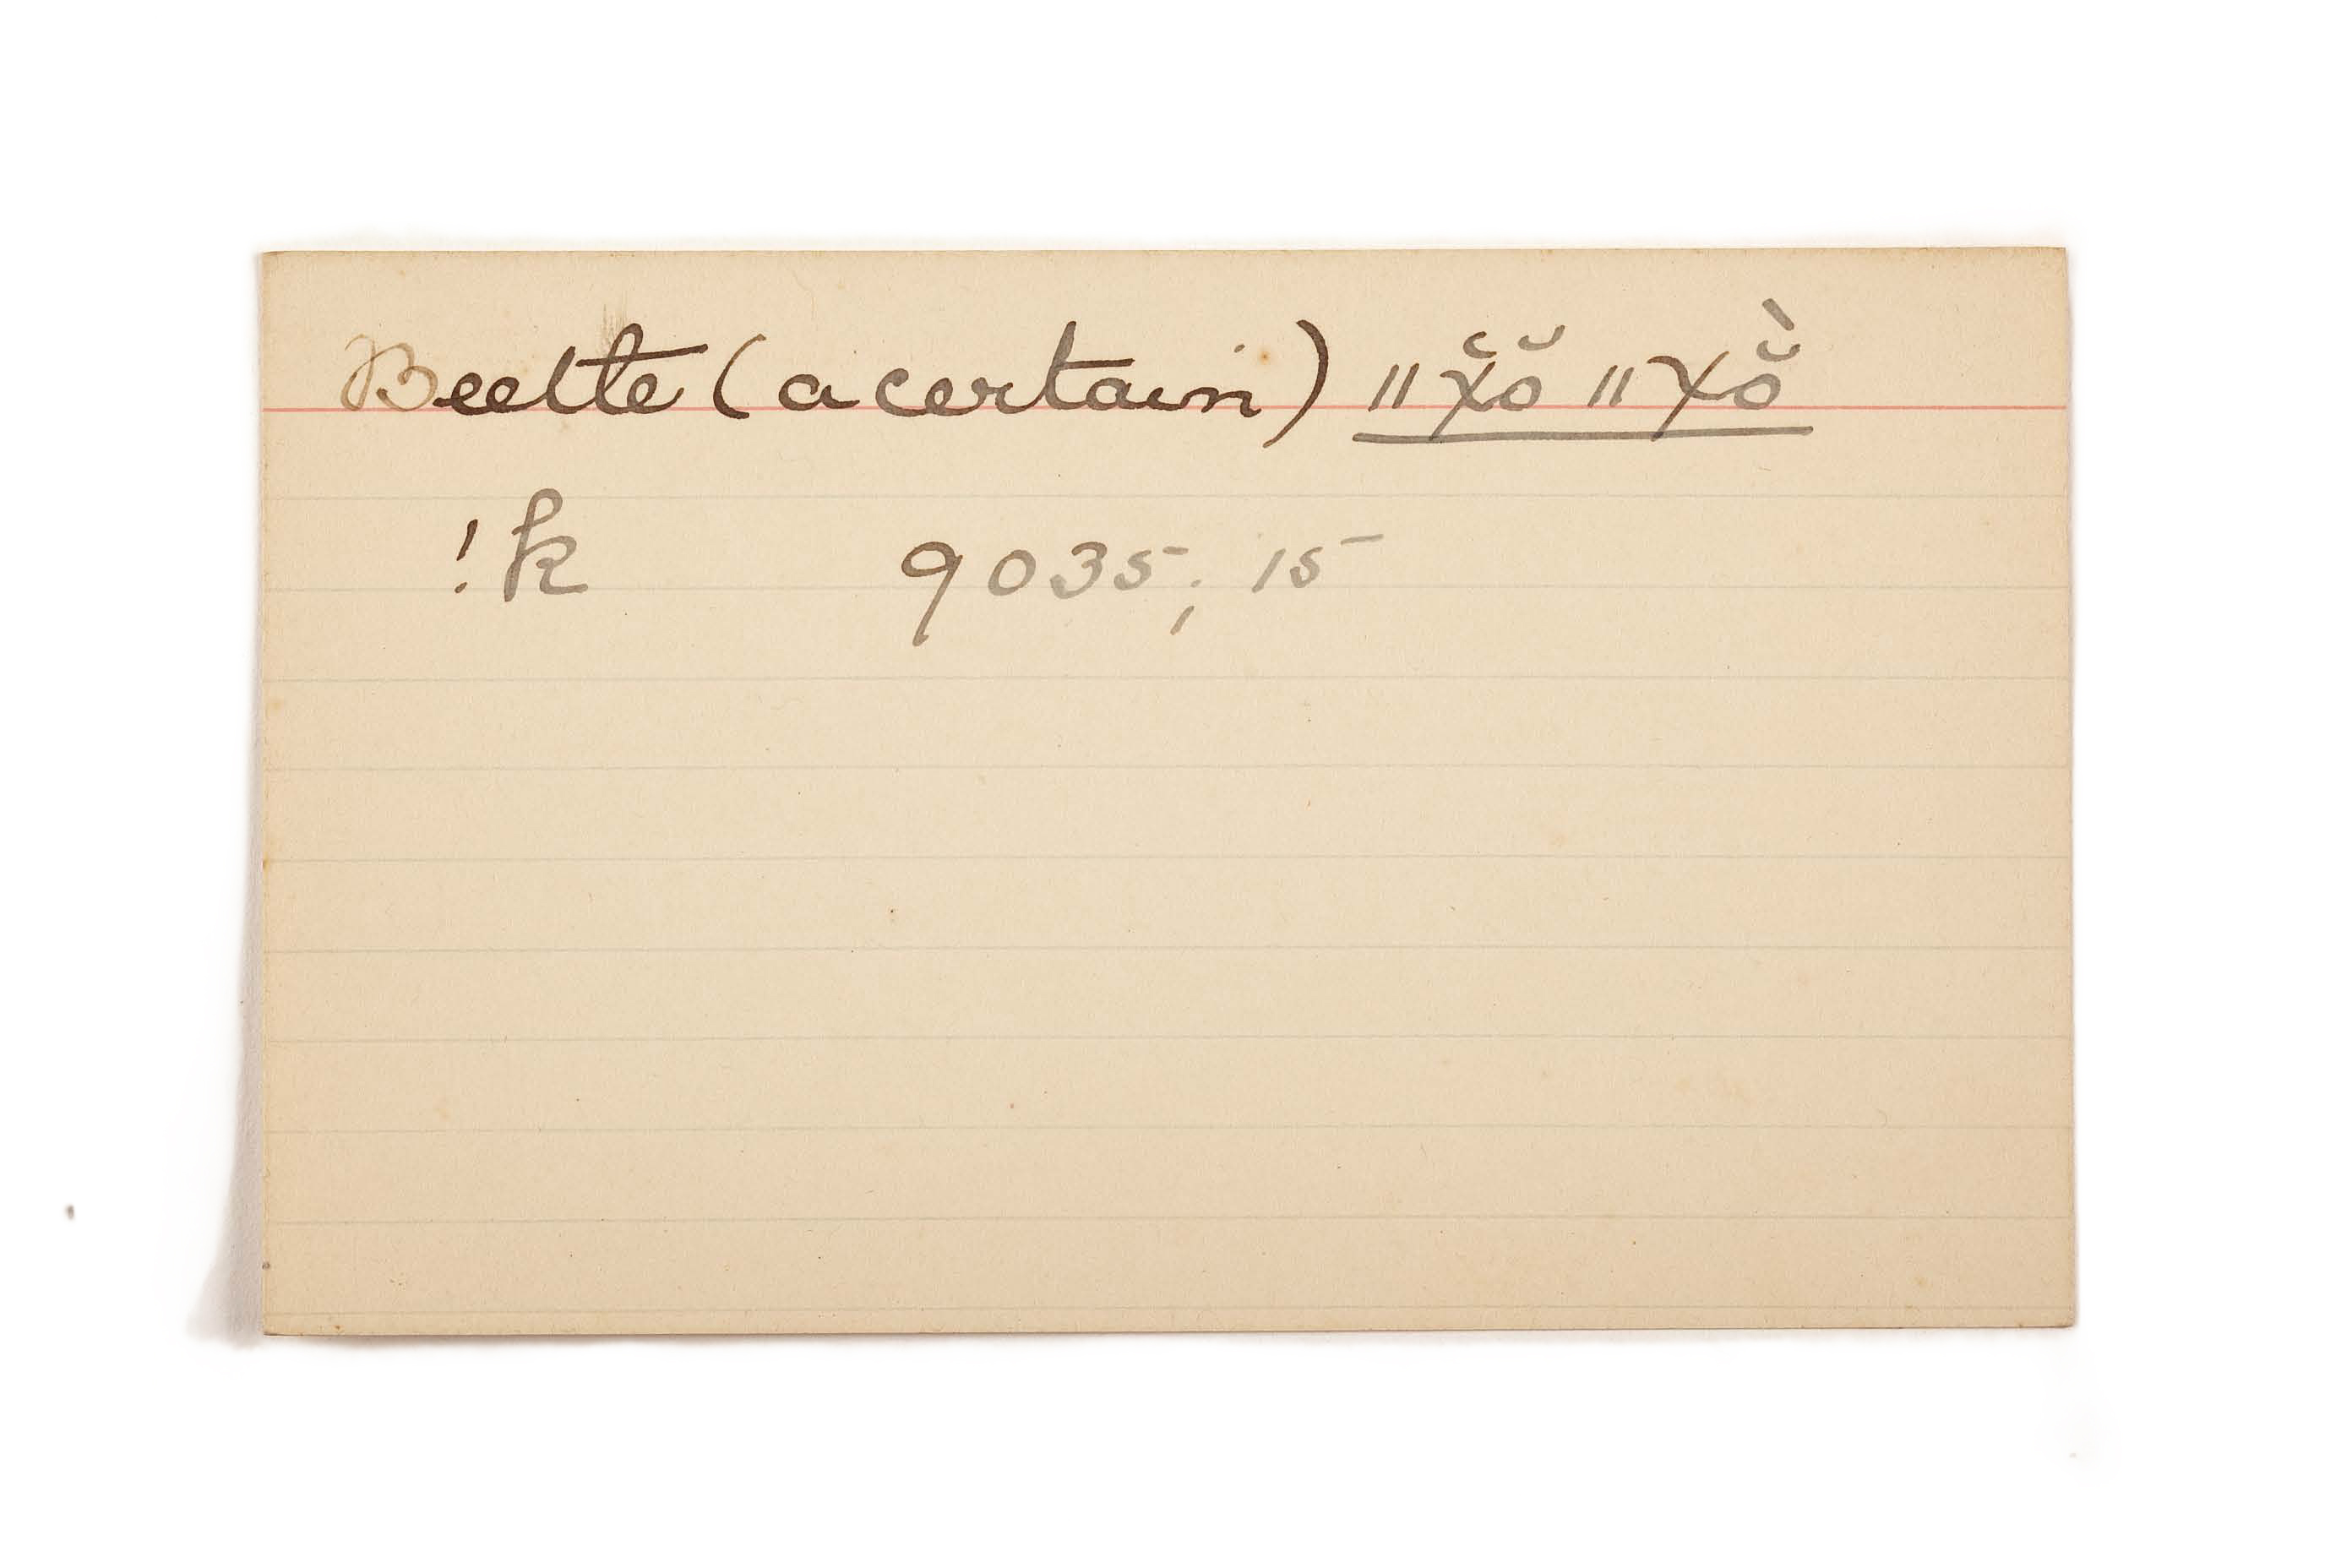 Beetle (a certain) ǁχ̆ŏ ǁχŏ̀
!k 9035; 15